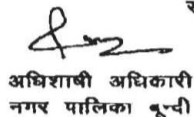 अधिशाषी अधिकारी
नगर पालिका बून्दी